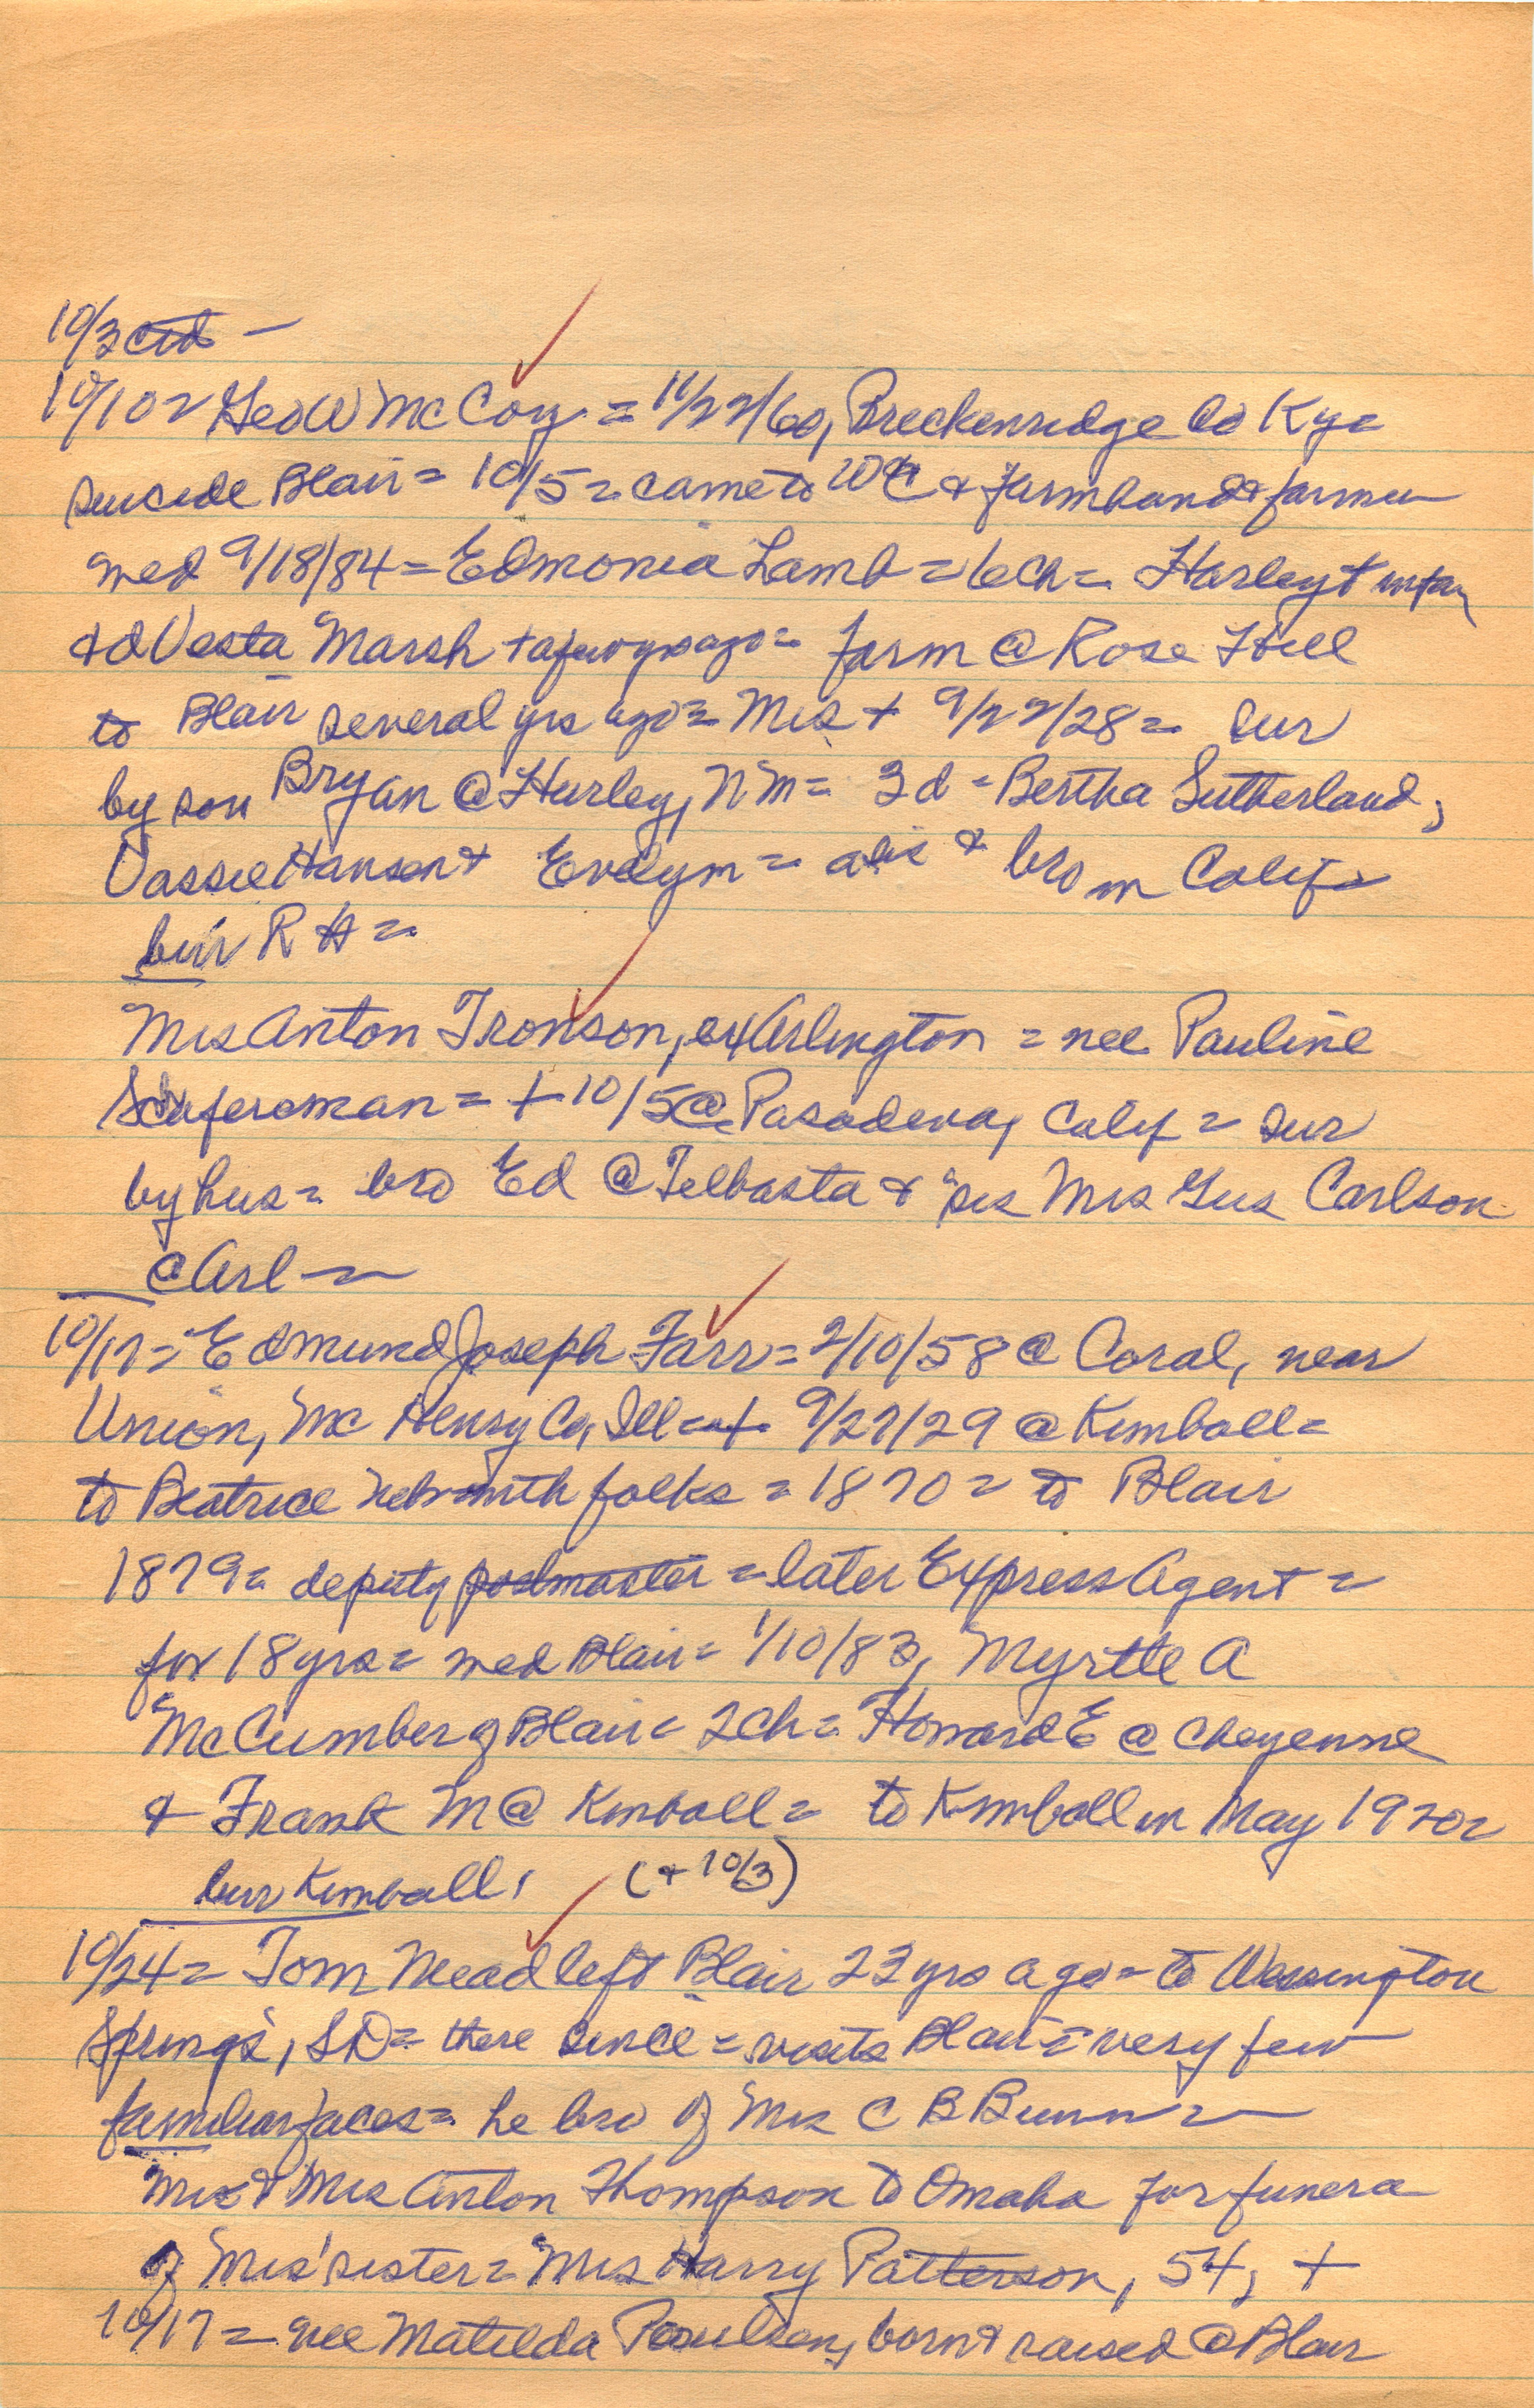 10/3 ctd -
10/10 = Geo W McCoy = 11/27/60, Breckenridge Co Ky =
suicide Blair = 10/5 = came to WC & farmhand & farmer
med 9/18/84 = Edmonia Lamb = 6ch = Harley + infan
& d Vesta Marsh + a few yrs ago = farm @ Rose Hill
to Blair several yrs ago = Mrs + 9/27/28 = sur
by son Bryan @ Hurley, NM = 3d = Bertha Sutherland,
Vassie Hansen & Evelyn = a sis & bro in Calif =
bur R H =
Mrs Anton Tronson, ex Arlington = nee Pauline
Schaferoman = + 10/5 @ Pasadena, Calif = sur
by hus = bro Ed @ Telbasta & sis Mrs Gus Carlson
@ Arl =
10/17 = Edmund Joseph Farr = 2/10/58 @ Coral, near
Union, McHenry Co, Ill = + 9/27/29 @ Kimball =
to Beatrice Neb = with folks = 1870 = to Blair
1879 = deputy postmaster = later Express Agent =
for 18 yrs = med Blair = 1/10/83, Myrtle A
McCumber of Blair = 2ch = Howard E @ Cheyenne
& Frank M @ Kimball = to Kimball in May 1920 =
bur Kimball, (& 10/3)
10/24 = Tom Mead left Blair 23 yrs ago = to Wessington
Springs, SD = there since = visits Blair = very few
familiar faces = he bro of Mrs C B Bunn =
Mr & Mrs Anton Thompson to Omaha for funera
of Mrs' sister = Mrs Harry Patterson, 54, +
10/17 = nee Matilda Poulsen, born & raised @ Blair